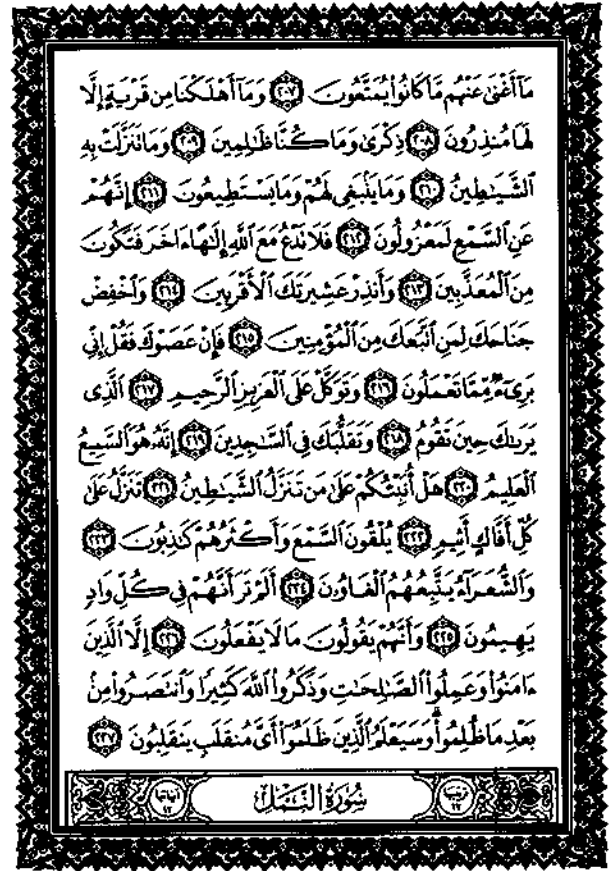 مَآ أَغْنَىٰ عَنْهُم مَّا كَانُوا۟ يُمَتَّعُونَ ٢٠٧ وَمَآ أَهْلَكْنَا مِن قَرْيَةٍ إِلَّا
لَهَا مُنذِرُونَ ٢٠٨ ذِكْرَىٰ وَمَا كُنَّا ظَٰلِمِينَ ٢٠٩ وَمَا تَنَزَّلَتْ بِهِ
ٱلشَّيَٰطِينُ ٢١٠ وَمَا يَنۢبَغِى لَهُمْ وَمَا يَسْتَطِيعُونَ ٢١١ إِنَّهُمْ
عَنِ ٱلسَّمْعِ لَمَعْزُولُونَ ٢١٢ فَلَا تَدْعُ مَعَ ٱللَّهِ إِلَٰهًا ءَاخَرَ فَتَكُونَ
مِنَ ٱلْمُعَذَّبِينَ ٢١٣ وَأَنذِرْ عَشِيرَتَكَ ٱلْأَقْرَبِينَ ٢١٤ وَٱخْفِضْ
جَنَاحَكَ لِمَنِ ٱتَّبَعَكَ مِنَ ٱلْمُؤْمِنِينَ ٢١٥ فَإِنْ عَصَوْكَ فَقُلْ إِنِّى
بَرِىٓءٌ مِّمَّا تَعْمَلُونَ ٢١٦ وَتَوَكَّلْ عَلَى ٱلْعَزِيزِ ٱلرَّحِيمِ ٢١٧ ٱلَّذِى
يَرَىٰكَ حِينَ تَقُومُ ٢١٨ وَتَقَلُّبَكَ فِى ٱلسَّٰجِدِينَ ٢١٩ إِنَّهُۥ هُوَ ٱلسَّمِيعُ
ٱلْعَلِيمُ ٢٢٠ هَلْ أُنَبِّئُكُمْ عَلَىٰ مَن تَنَزَّلُ ٱلشَّيَٰطِينُ ٢٢١ تَنَزَّلُ عَلَىٰ
كُلِّ أَفَّاكٍ أَثِيمٍ ٢٢٢ يُلْقُونَ ٱلسَّمْعَ وَأَكْثَرُهُمْ كَٰذِبُونَ ٢٢٣
وَٱلشُّعَرَآءُ يَتَّبِعُهُمُ ٱلْغَاوُۥنَ ٢٢٤ أَلَمْ تَرَ أَنَّهُمْ فِى كُلِّ وَادٍ
يَهِيمُونَ ٢٢٥ وَأَنَّهُمْ يَقُولُونَ مَا لَا يَفْعَلُونَ ٢٢٦ إِلَّا ٱلَّذِينَ
ءَامَنُوا۟ وَعَمِلُوا۟ ٱلصَّٰلِحَٰتِ وَذَكَرُوا۟ ٱللَّهَ كَثِيرًا وَٱنتَصَرُوا۟ مِنۢ
بَعْدِ مَا ظُلِمُوا۟ ۗ وَسَيَعْلَمُ ٱلَّذِينَ ظَلَمُوٓا۟ أَىَّ مُنقَلَبٍ يَنقَلِبُونَ ٢٢٧
سُورَةُ النَّمْلِ